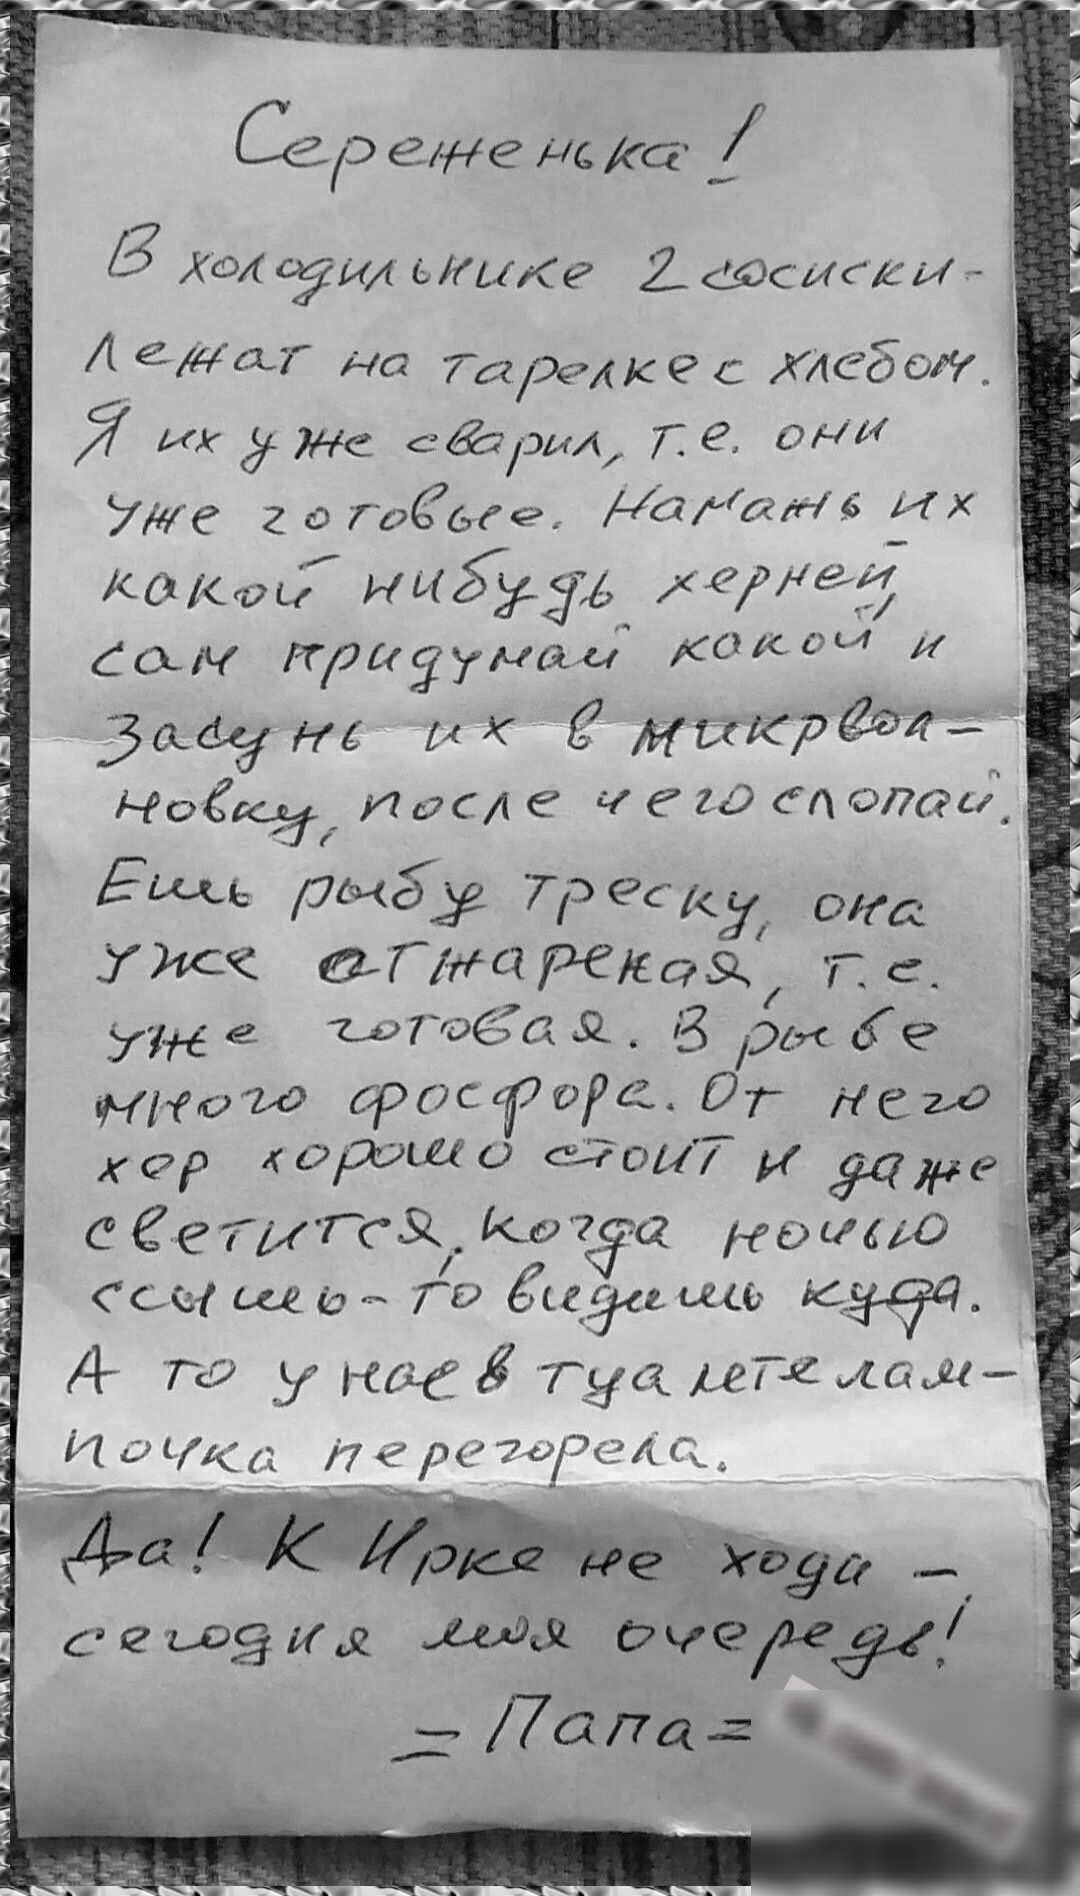 Сереженька!
В холодильнике 2 сосиски -
лежат на тарелке с хлебом.
Я их уже сварил, т.е. они
уже готовые. Намажь их
какой нибудь херней,
сам придумай какой и
засунь их в микрвол-
новку, после чего слопай.
Ешь рыбу треску, она
уже отжареная, т.е.
уже готовая. В рыбе
много фосфора. От него
хер хорошо стоит и даже
светится, когда ночью
ссышь - то видишь куда.
А то у нас в туалете лам-
почка перегорела.
Да! К Ирке не ходи -
сегодня моя очередь!
= Папа =